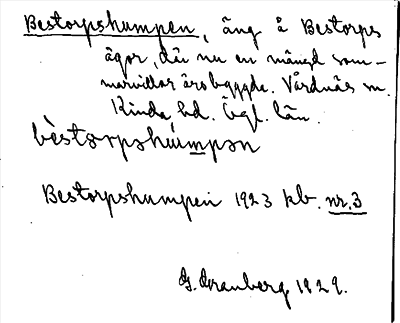 Bestorpshumpen, äng å Bestorps
ägor, där nu en mängd som-
marvillor äro byggda. Vårdnäs sn.
Kinda hd. Ögl. län.
bèstɷrpshúmpən
Bestorpshumpen 1923 kb. nr. 3
G. Granberg 1929.